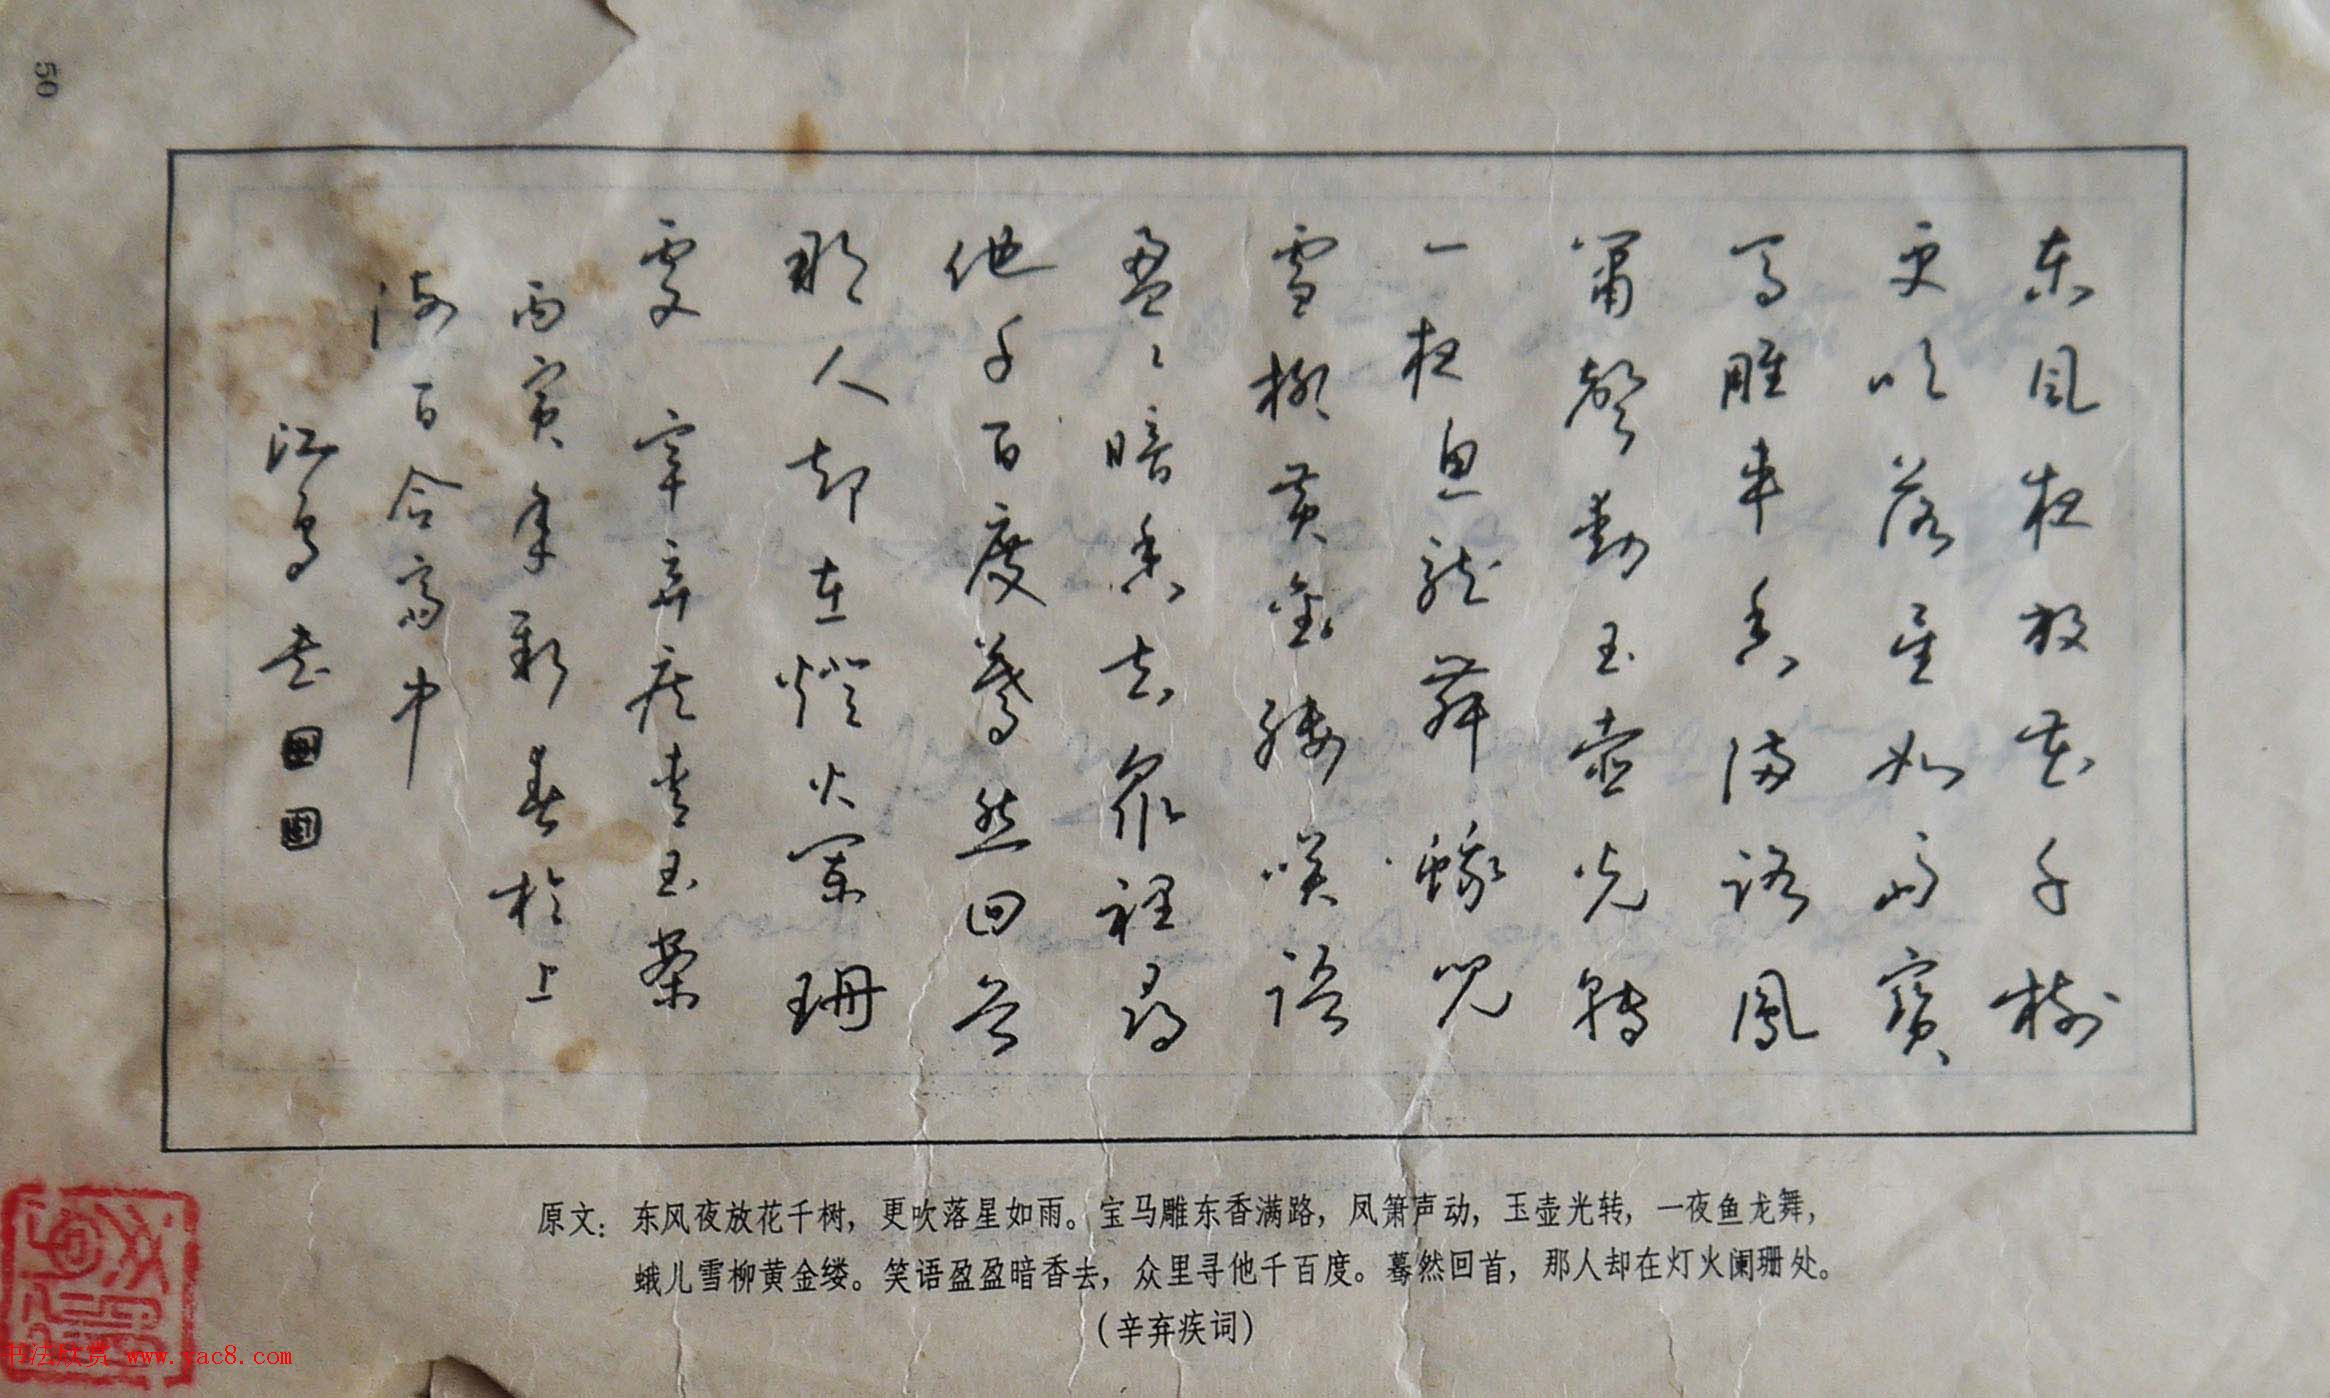 东风夜放花千樹
更吹落星如雨寶
马雕車香满路鳳
簫聲動玉壺光轉
一夜魚龙舞蛾兒
雪柳黄金缕咲語
盈々暗香去眾裡尋
他千百度蓦然回首
那人却在燈火闌珊
處 辛弃疾青玉案
丙寅年新春於上
海百合高中
江鸟书
原文：东风夜放花千树，更吹落星如雨。宝马雕东香满路，凤箫声动，玉壶光转，一夜鱼龙舞，
蛾儿雪柳黄金缕。笑语盈盈暗香去，众里寻他千百度。蓦然回首，那人却在灯火阑珊处。
（辛弃疾词）
50
书法欣赏 www.yac8.com